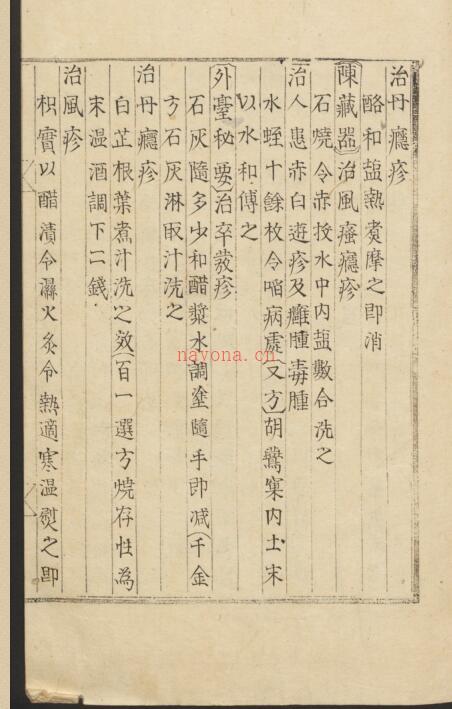 治丹癮疹
酪和盐熱煑摩之即消
陳藏器治風瘙癮疹
石燒令赤投水中内盐數合洗之
治人患赤白遊疹及癰腫毒腫
水蛭十餘枚令啗病處又方胡鷰窠内土末
以水和傅之
外臺秘要治卒發疹
石灰隨多少和醋漿水調塗隨手即减千金
方石灰淋取汁洗之
治丹癮疹
白芷根葉煮汁洗之效百一選方燒存性為
末温酒調下二錢
治風疹
枳實以醋漬令濕火炙令熱適寒温熨之即
nayona.cn